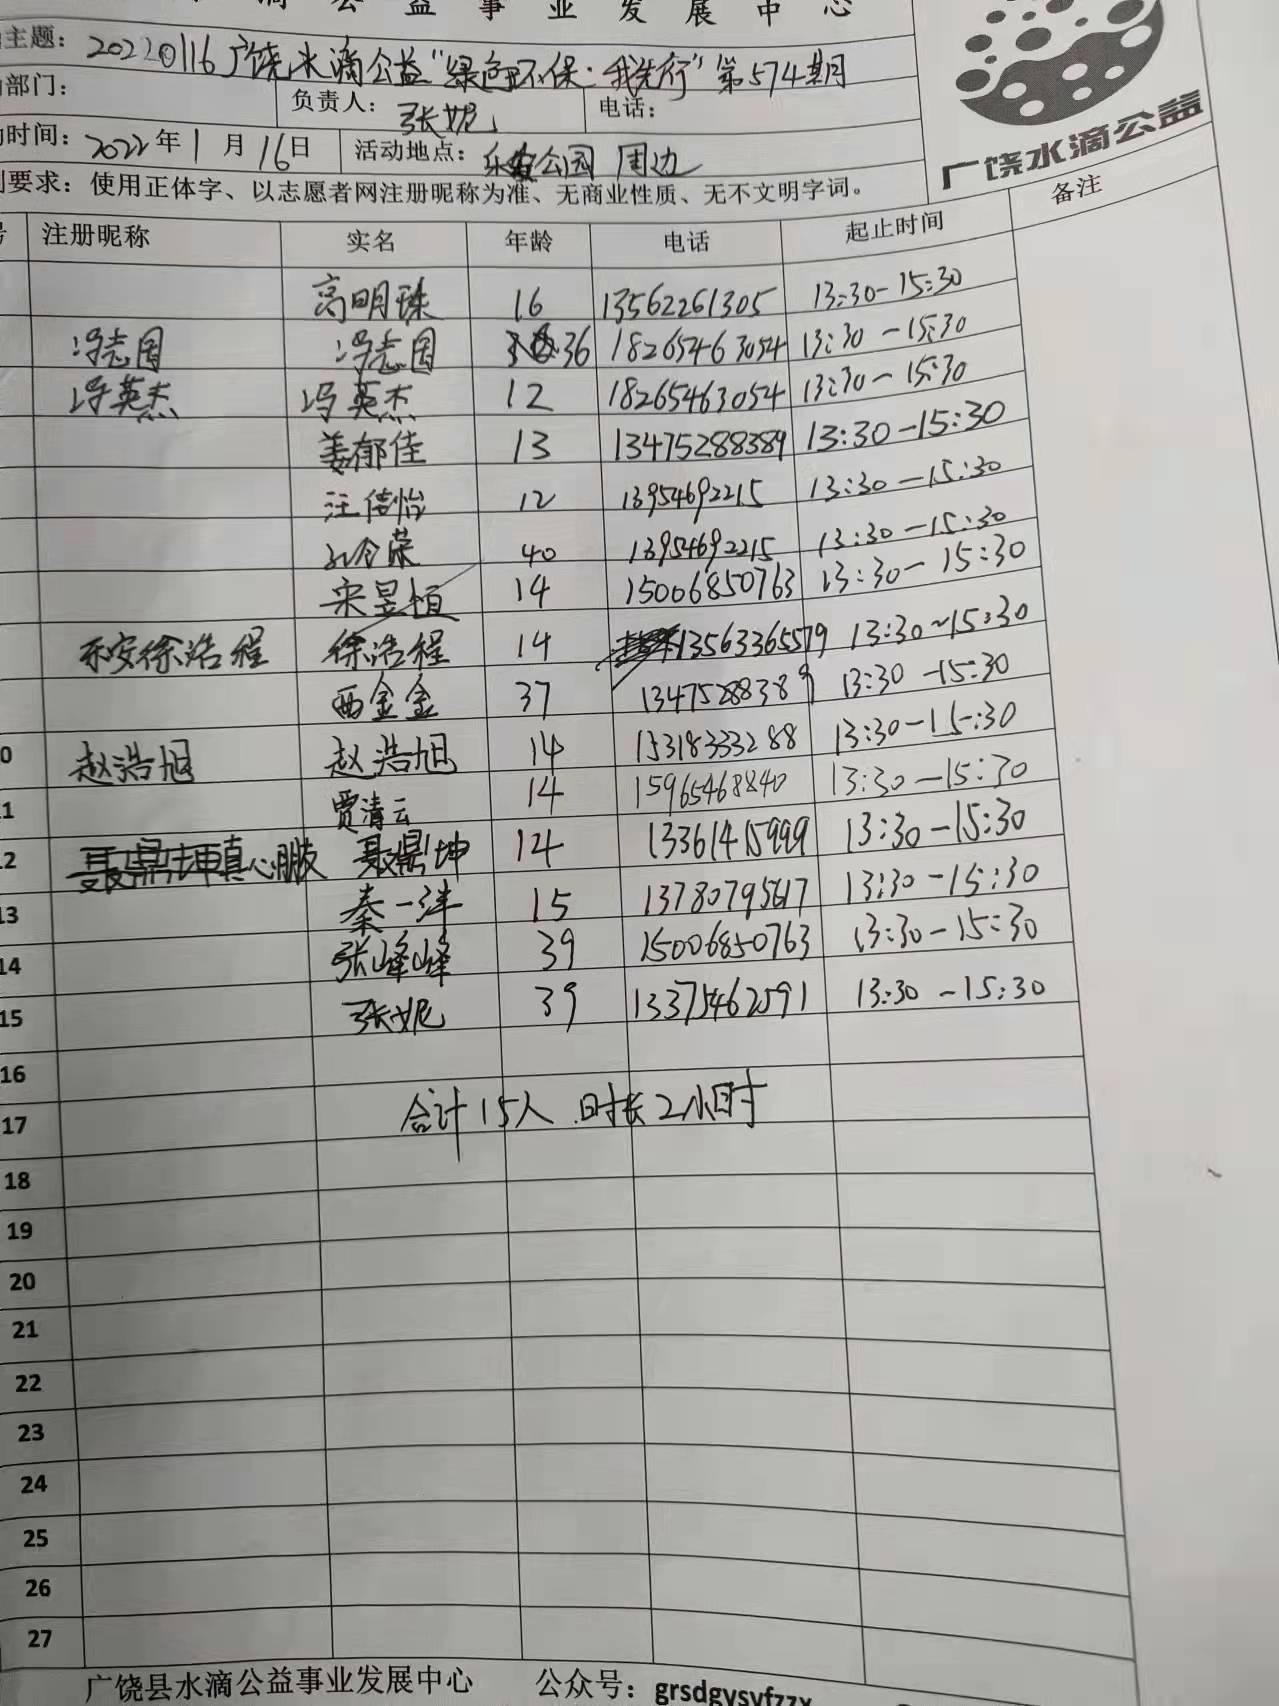 滴公益事业发展中心
主题：20220116广饶水滴公益"绿色环保·我先行"第574期
部门：
负责人：张妮
电话：
时间：2022年1月16日
活动地点：乐安公园 周边
要求：使用正体字、以志愿者网注册昵称为准、无商业性质、无不文明字词。
广饶水滴公益
号 注册昵称 实名 年龄 电话 起止时间 备注
高明珠 16 13562261305 13:30-15:30
冯志国 冯志国 36 18265463054 13:30-15:30
冯英杰 冯英杰 12 18265463054 13:30-15:30
姜郁佳 13 13475288389 13:30-15:30
汪信怡 12 13954692215 13:30-15:30
40 13954692215 13:30-15:30
宋昱恒 14 15006850763 13:30-15:30
乐安徐浩程 徐浩程 14 13563365579 13:30~15:30
西金金 37 13475288389 13:30-15:30
0 赵浩旭 赵浩旭 14 15318333288 13:30-15:30
1 贾清云 14 15965468840 13:30-15:30
2 聂鼎坤真心朋友 聂鼎坤 14 13361415999 13:30-15:30
13 秦一洋 15 13780795617 13:30-15:30
14 张峰峰 39 15006850763 13:30-15:30
15 张妮 39 13375462591 13:30-15:30
16
合计15人 时长2小时
17
18
19
20
21
22
23
24
25
26
27
广饶县水滴公益事业发展中心 公众号：grsdgysyfzzx